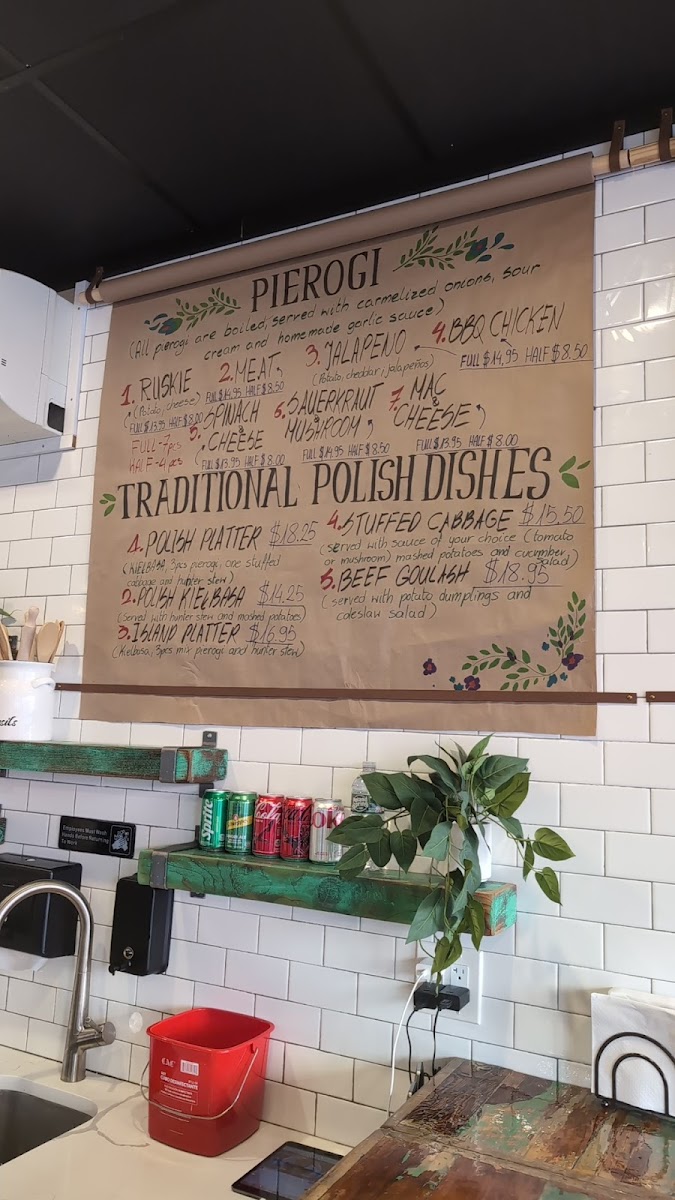 PIEROGI
(All pierogi are boiled, served with carmelized onions, sour
cream and homemade garlic sauce)
1. RUSKIE
(Potato, cheese)
FULL $13.95 HALF $8.00
FULL-7pcs
HALF-4pcs
2. MEAT
FULL $14.95 HALF $8.50
3. JALAPENO
(Potato, cheddar, jalapeños)
4. BBQ CHICKEN
FULL $14.95 HALF $8.50
5. SPINACH
& CHEESE
FULL $13.95 HALF $8.00
6. SAUERKRAUT
&
MUSHROOM
FULL $14.95 HALF $8.50
7. MAC
&
CHEESE
FULL $13.95 HALF $8.00
TRADITIONAL POLISH DISHES
1. POLISH PLATTER $18.25
(KIELBASA, 3pcs pierogi, one stuffed
cabbage and hunter stew)
2. POLISH KIELBASA $14.25
(Served with hunter stew and mashed potatoes)
3. ISLAND PLATTER $16.95
(Kielbasa, 3pcs mix pierogi and hunter stew)
4. STUFFED CABBAGE $15.50
(served with sauce of your choice (tomato
or mushroom) mashed potatoes and cucumber
salad)
5. BEEF GOULASH $18.95
(served with potato dumplings and
coleslaw salad)
Sprite
Employees Must Wash
Hands Before Returning
To Work